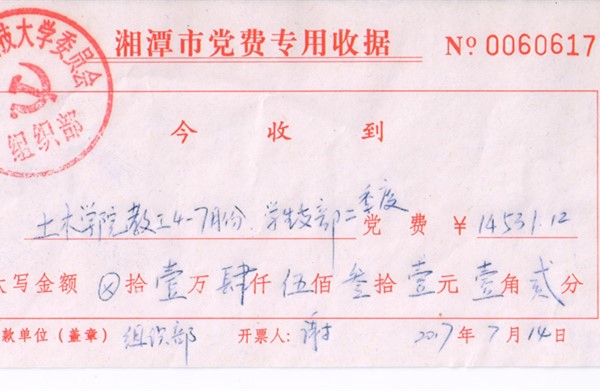 湘潭市党费专用收据 Nº 0060617
技大学委员会
组织部
今收到
土木学院教工4-7月份、学生支部二季度 党费 ¥ 14531.12
大写金额 ⊗拾壹万肆仟伍佰叁拾壹元壹角贰分
款单位(盖章) 组织部 开票人: 谢 2017年7月14日